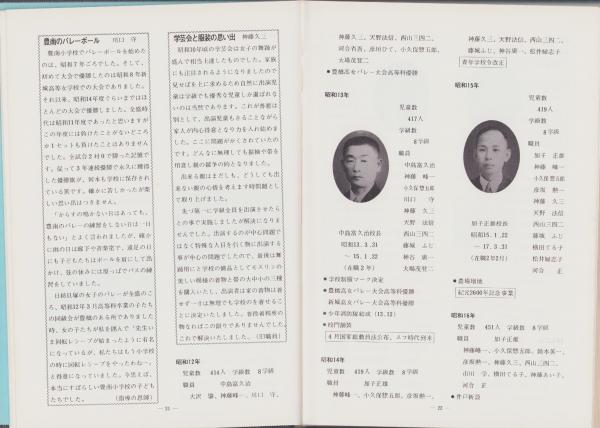 豊南のバレーボール　川口　守
豊南小学校でバレーボールを始めた
のは、昭和7年ごろでした。そして、
初めて大会で優勝したのは昭和8年新
城高等女学校での大会でありました。
それ以来、昭和14年度ぐらいまではほ
とんどの大会で優勝しました。全盛時
代は昭和11年度であったと思いますが
この年度には負けたことがないどころ
か1セットも負けたことはありません
でした。全試合2対0で勝った記憶で
す。従って3年連続優勝で永久に獲得
した優勝旗が、何本も学校に保存され
ている筈です。確かに苦しかったが楽
しい思い出はつきません。
「からすの鳴かない日はあっても、
豊南のバレーの練習をしない日は一日
もない」とよく言われましたが、確か
に雨の日は廊下や音楽室で、遠足の日
にも子どもたちはボールを肩にして出
かけ、昼の休みには原っぱでパスの練
習をしていました。
日紡貝塚の女子のバレーが全盛のこ
ろ、昭和12年3月高等科卒業の子たち
の同級会が豊橋のある所でありました
時、女の子たちが私を囲んで“先生い
ま回転レシーブが始まったように有名
になっているが、私たちはもう小学校
の時に回転レシーブをやったわねー。
と得意になっていました。今思えば、
本当にすばらしい豊南小学校の子ども
たちでした。　（指導の恩師）
学芸会と服装の思い出　神藤久三
昭和10年頃の学芸会は女子の舞踊が
盛んで相当上達したものでした。家族
にも注目されるようになりましたので
見せばを上に求めるため自然に出演児
童は学級でも優秀な児童しか選ばれな
いのは当然であります。これが各都は
別として、出演児童もさることながら
家人が内心得意となり力を入れ始めま
した。ここに問題がかくされていたの
です。どんなに無理しても振袖や帯を
用意し親の競争の的となりました。
出来る親はまだしも、どうしても出
来ない親の心情を考えます時問題とし
て取り上げました。
先づ第一に学級全員を出演させたら
との事で実施しましたが解決になりま
せんでした。出演するのが中心問題で
はなく特殊な人目を引く物に出演する
事が中心の問題でしたので、最後は舞
踊用にと学校の備品としてモスリンの
美しい模様の着物と帯の大中小の三種
を購入いたし、出演者は家の着物は着
せず一寸は無理でも学校のを着せるこ
とに決定いたしました。普段着程度の
物なればこの限りでありませんでした。
これで解決いたしました。（旧職員）
昭和12年
児童数　414人　学級数　8学級
職員　中島富久治
大沢　肇、神藤峰一、川口　守、
— 21 —
神藤久三、天野法信、西山三四二、
河合省吾、彦坂ひて、小久保惣五郎、
大場茂登二
●豊橋高女バレー大会高等科優勝
昭和13年
児童数
417人
学級数
8学級
職員
中島富久治
神藤　峰一
小久保惣五郎
川口　守
神藤　久三
天野　法信
西山三四二
藤城　ふじ
神谷　康一
大場茂登二
中島富久治校長
昭和13．3．31
～15．1．22
（在職2年）
●学校制服マーク決定
●豊橋高女バレー大会高等科優勝
新城高女バレー大会高等科優勝
●少年消防隊結成（13.12）
●校門舗装
4月国家総動員法公布、スフ時代到来
昭和14年
児童数　419人　学級数　8学級
職員　加子正雄
神藤峰一、小久保惣五郎、彦坂勲一、
神藤久三、天野法信、西山三四二、
藤城ふじ、神谷康一、松井婦志子
青年学校令改正
昭和15年
児童数
419人
学級数
8学級
職員
加子　正雄
神藤　峰一
小久保惣五郎
彦坂　勲一
神藤　久三
天野　法信
西山三四二
藤城　ふじ
横田てる子
松井婦志子
河合　正
加子正雄校長
昭和15．1．22
～17．3．31
（在職2年2月）
●農場増地
紀元2600年記念事業
昭和16年
児童数　451人　学級数　8学級
職員　加子正雄
神藤峰一、小久保惣五郎、鈴木英一、
彦坂勲一、神藤久三、西山三四二、
山川　学、横田てる子、神藤あい子、
河合　正
●井戸新設
— 22 —